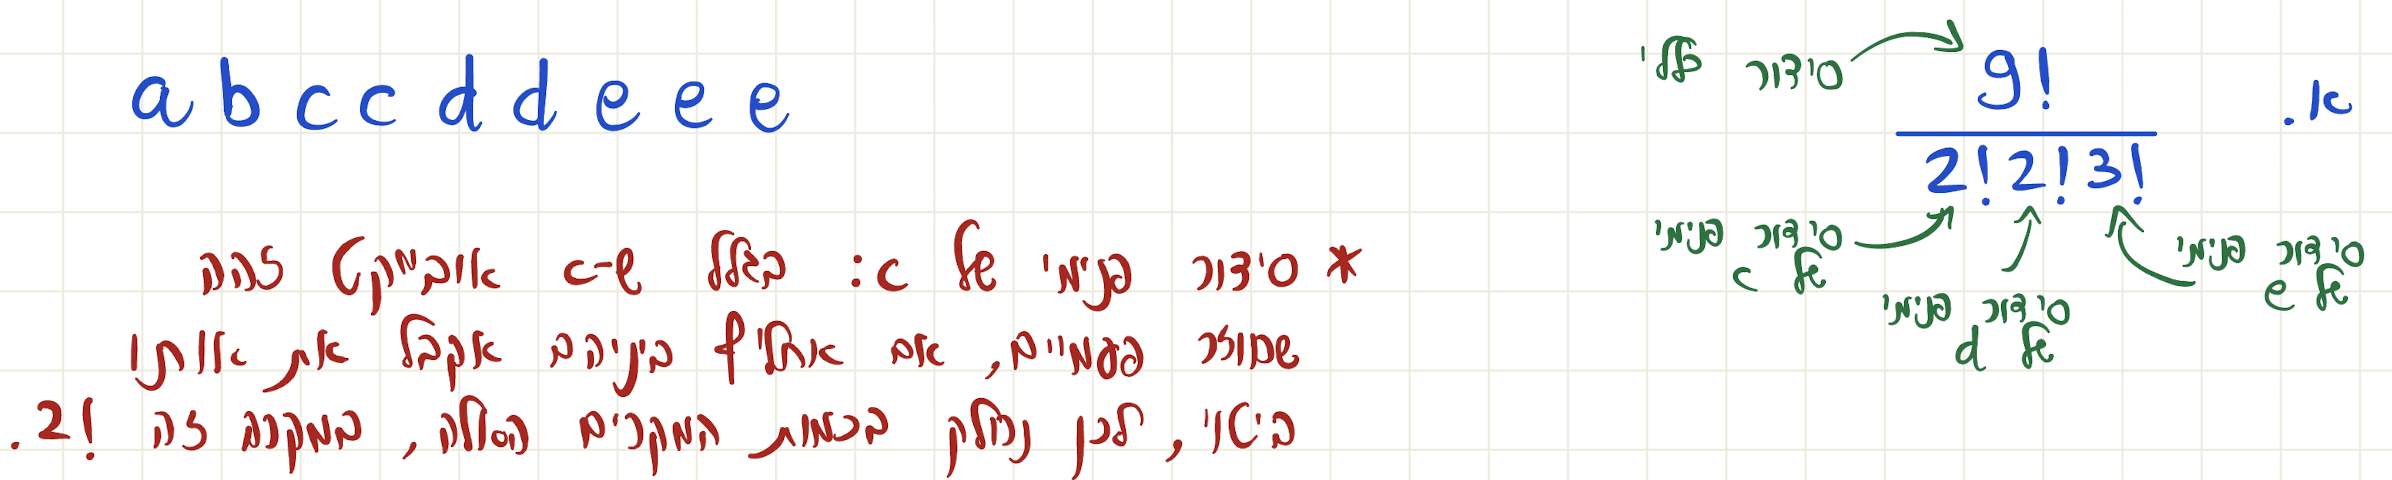 א.
9!
2! 2! 3!
סידור כללי
סידור פנימי
של c
סידור פנימי
של d
סידור פנימי
של e
a b c c d d e e e
* סידור פנימי של c: בגלל ש-c אובייקט זהה
שחוזר פעמיים, אם אחליף ביניהם אקבל את אותו
ביטוי, לכן נחלק בכמות המקרים הכוללת, במקרה זה 2!.